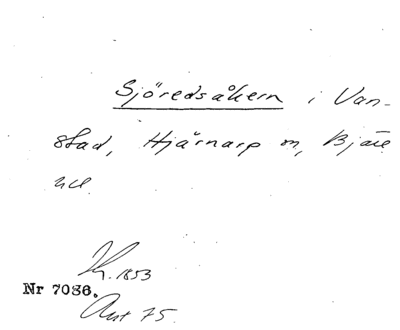 Sjöredsåkern i Van-
stad, Hjärnarp sn, Bjäre
hd.
K. 1853
Nr 7086.
Ant 75.